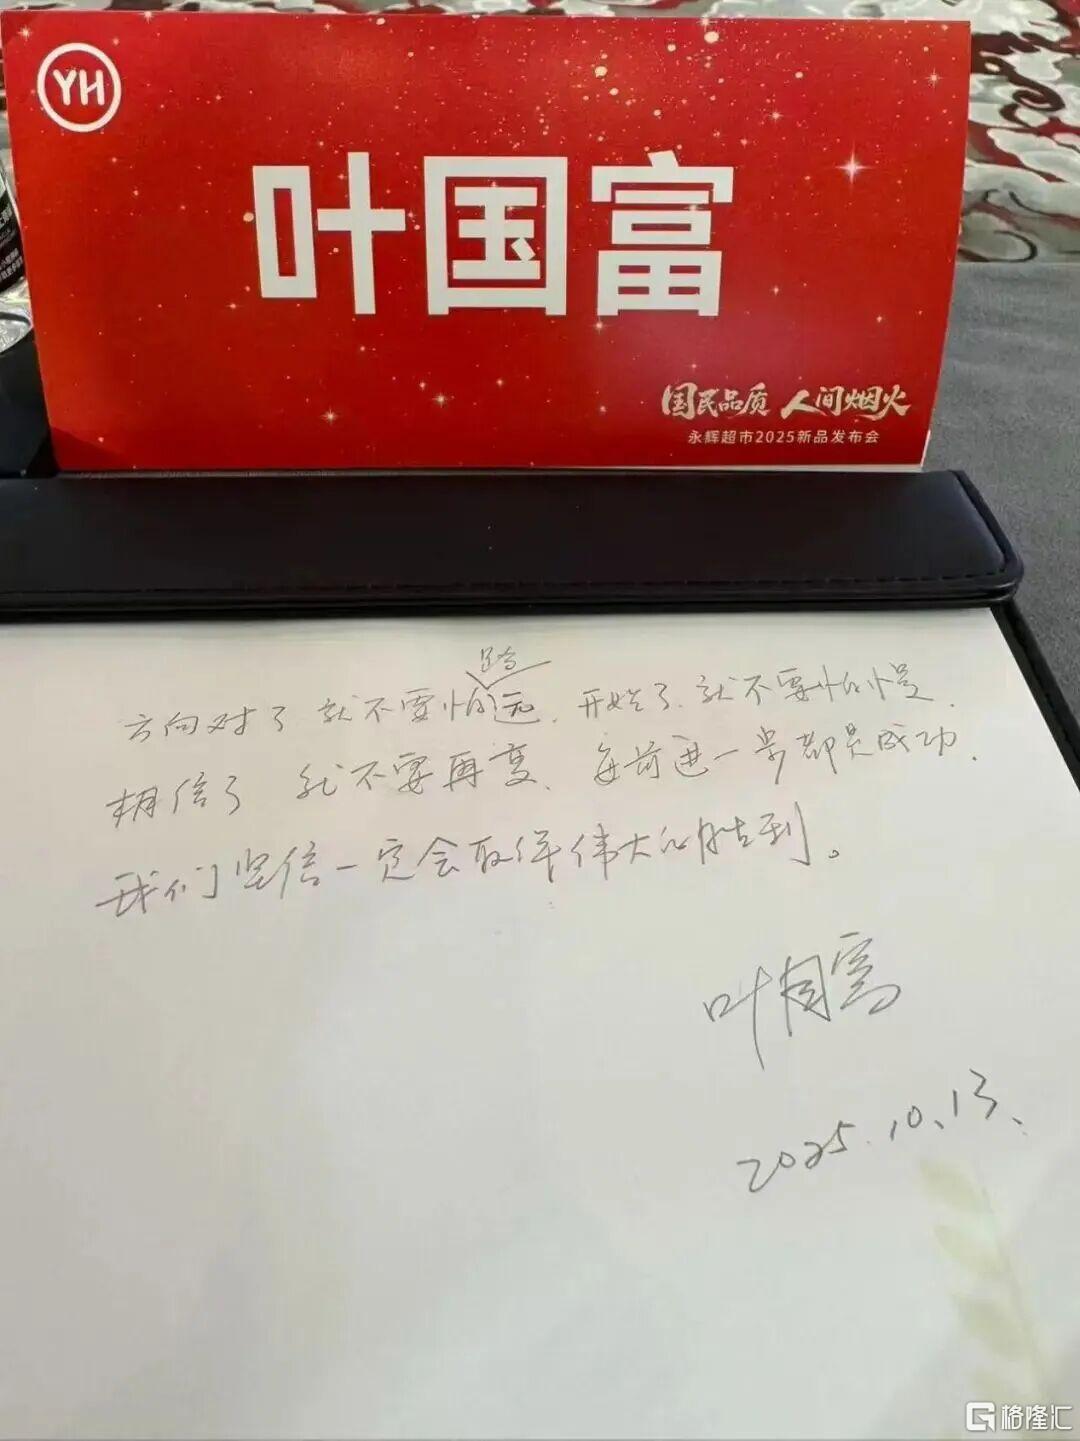 YH
叶国富
国民品质 人间烟火
永辉超市2025新品发布会
路
方向对了就不要怕远、开始了、就不要怕慢、
相信了 就不要再变、每前进一步都是成功、
我们坚信一定会取得伟大的胜利。
叶国富
2025.10.13、
格隆汇